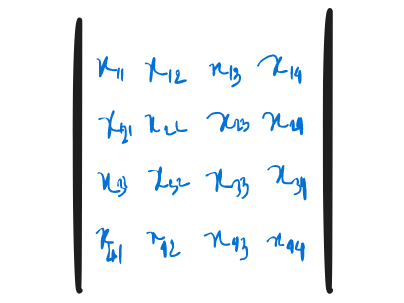 x₁₁ x₁₂ x₁₃ x₁₄
x₂₁ x₂₂ x₂₃ x₂₄
x₃₃ x₃₂ x₃₃ x₃₄
x₄₁ x₄₂ x₄₃ x₄₄